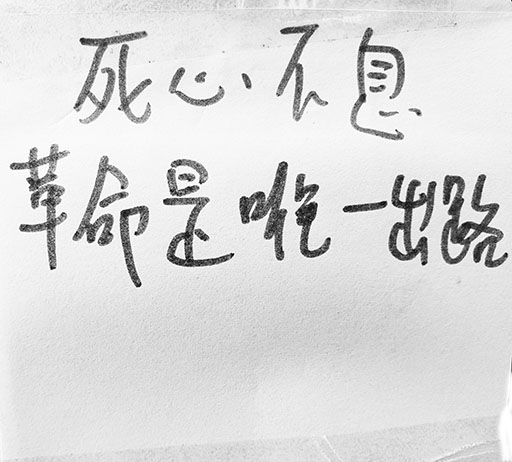 死心不息
革命是唯一出路